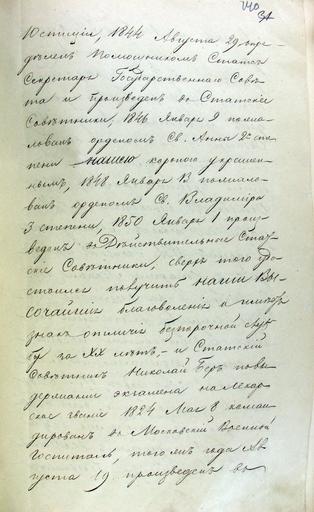 140
31
Юстиціи, 1844 Августа 29 опре
дѣленъ Помощникомъ Статсъ
Секретаря Государственнаго Совѣ
та и произведенъ въ Статскіе
Совѣтники, 1846 Января 9 пожа
лованъ орденомъ Св. Анны 2й сте
пени нашею короною украшен
нымъ, 1848 Января 13 пожало
ванъ орденомъ Св. Владиміра
3 степени, 1850 Января 1 произ
веденъ въ Дѣйствительные Стат
скіе Совѣтники, сверхъ того удо
стоился получить наши Вы
сочайшія благоволенія и имѣетъ
знакъ отличія безпорочной служ
бы за XX лѣтъ, — и Статскій
Совѣтникъ Николай Беръ по вы
держаніи экзамена на Лекар
ское званіе 1824 Мая 8 коман
дированъ въ Московскій Военный
Госпиталь, того жъ года Ав
густа 19 произведенъ въ